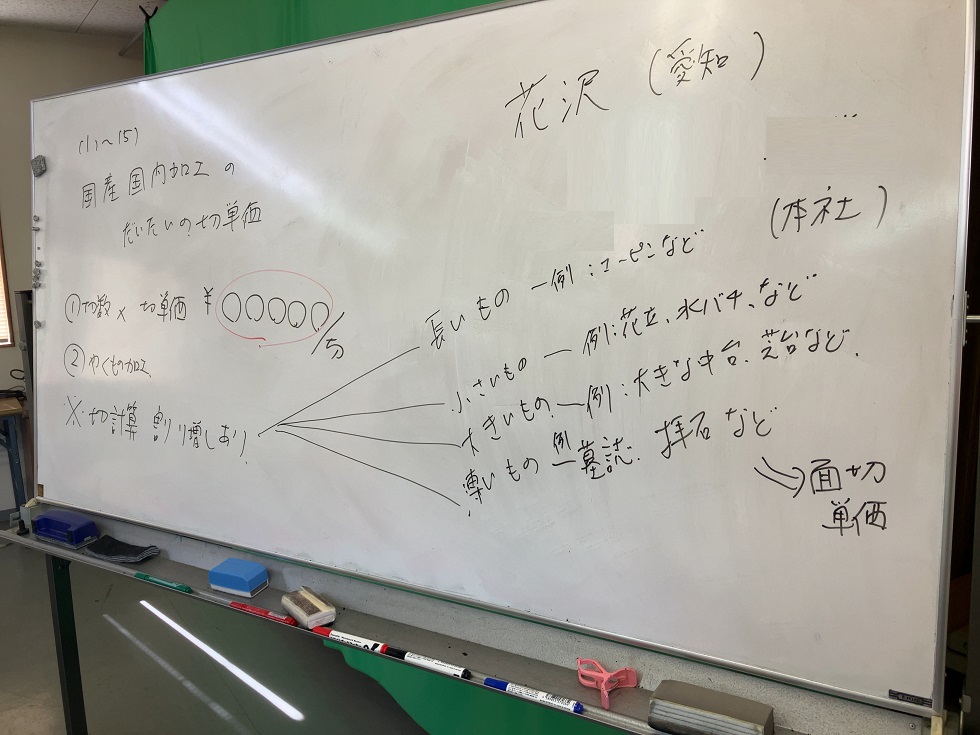 花沢 (愛知)
(本社)
(1)〜(5)
国産国内加工の
だいたいの切単価
①切数 × 切単価 ¥○○○○○/切
②やくもの加工
※切計算 割り増しあり
長いもの ー例:コーピンなど
小さいもの ー 例:花立、水バチ、など
大きいもの ー例:大きな中台、芝台など、
薄いもの 例ー墓誌、拝石など
⇒面切
単価